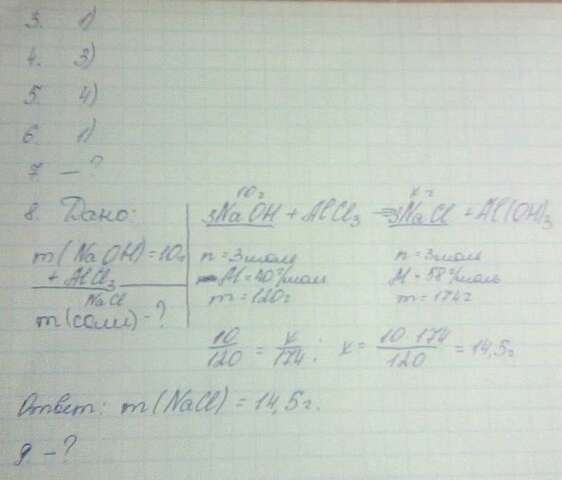 3. 1)
4. 3)
5. 4)
6. 1)
7. — ?
8. Дано:
m(NaOH)=10г
+ AlCl₃
NaCl
m(соли) - ?
10г x г
3NaOH + AlCl₃ → 3NaCl + Al(OH)₃
n = 3моль n = 3моль
M = 40 г/моль M = 58 г/моль
m = 120г m = 174г
10/120 = x/174; x = 10·174/120 = 14,5г
Ответ: m(NaCl) = 14,5г.
9 - ?